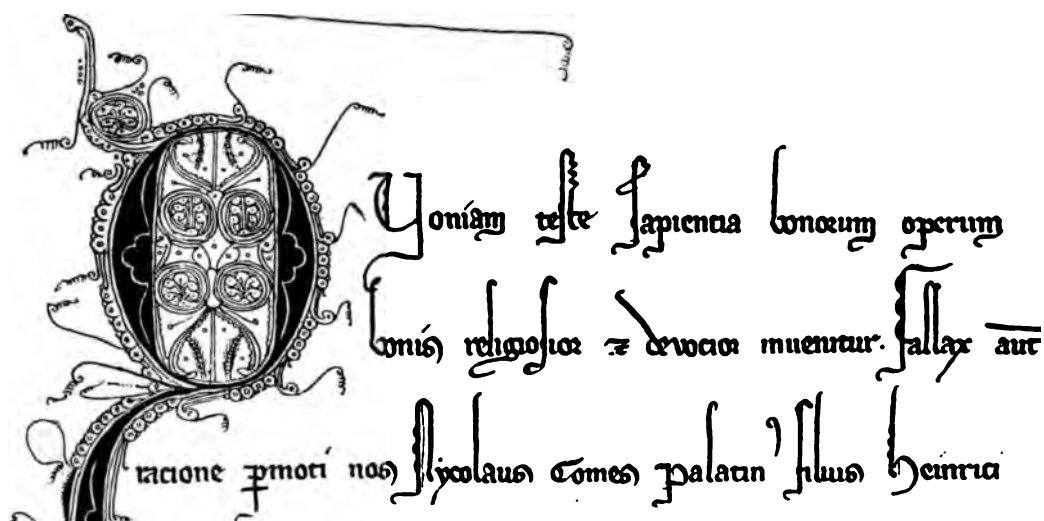 QUoniam teste Sapiencia bonorum operum
bonis religiosior ⁊ devocior inuenitur. Fallax aut
racione ꝑmoti nos Nycolaus Comes palatin' filius Heinrici